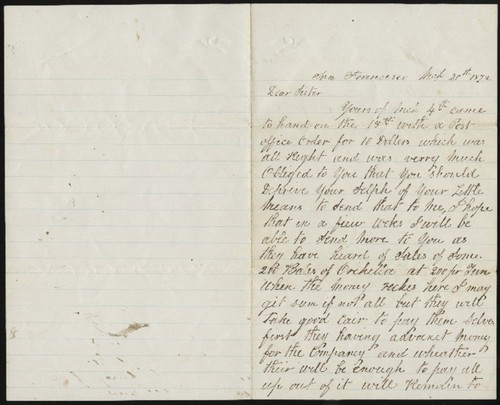 San Francisco Mch 20th 1872
Dear Sister
Yours of Mch 4th came
to hand on the 18th with a Post
office Order for 10 Dollers which was
all Right and was verry much
Obliged to You that You Should
Deprive Your Selph of Your Little
means to Send that to me, I hope
that in a few Weks I will be
able to Send More to You as
they have heard of Sales of Some
200 Bales of Orchella at 200 pr Tun
When the money reches here I may
git sum if not all but they will
take good cair to pay them Selves
first they having advocet money
for the Company and wheather
their will be enough to pay all
up out of it will Remain to